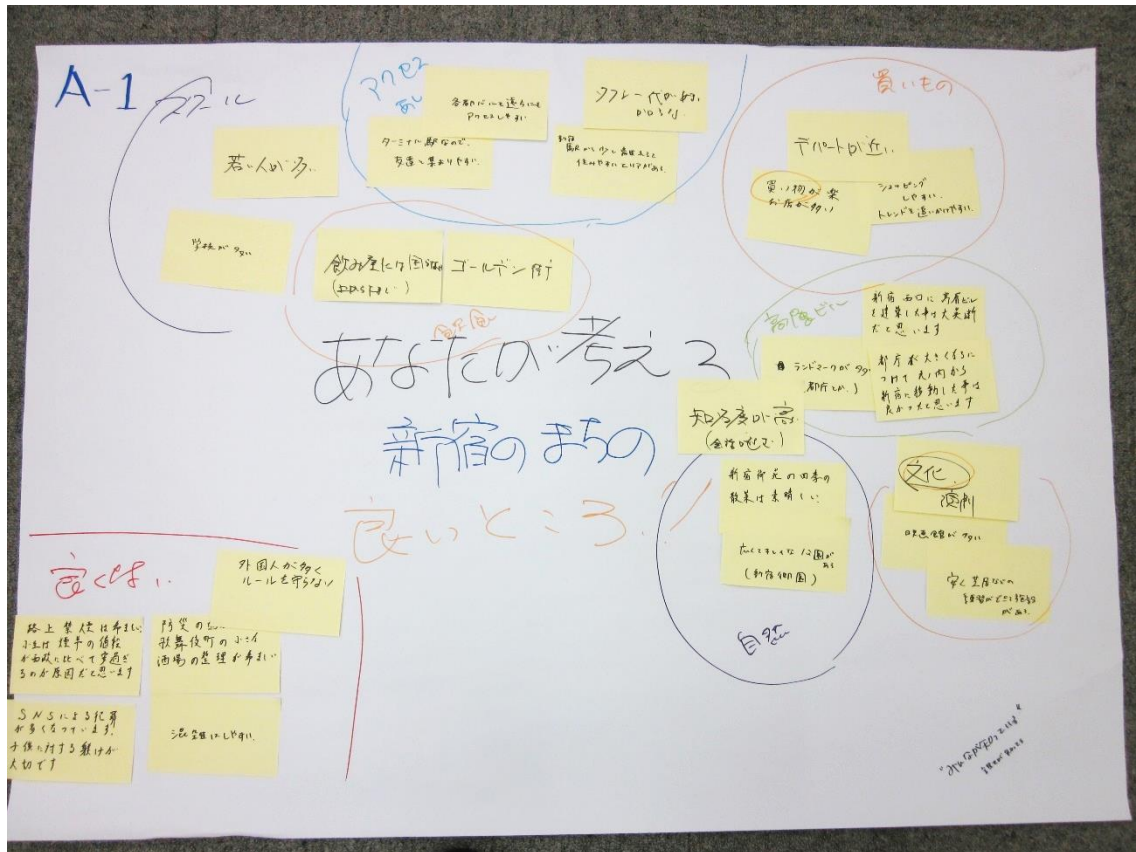 A-1
スクール
若い人が多い
学校が多い
アクセス
良し
各都バルと遠方にも
アクセスしやすい
ターミナル駅なので、
友達と集まりやすい。
タクシー代が
かからない
新宿
駅から少し離れると
住みやすいエリアがある。
飲み屋には困らない
ゴールデン街
飲食
買いもの
デパートが近い
買い物が楽
お店が多い
ショッピング
しやすい。
トレンドを追いかけやすい。
高層ビル
新宿西口に高層ビル
を建築した事は大英断
だと思います
ランドマークが多い
(都庁とか。)
都庁が大きくなるに
つけて丸ノ内から
新宿に移動した事は
良かったと思います
知名度が高い
あなたが考える
新宿のまちの
良いところ!
新宿御苑の四季の
散策は素晴しい
広くてきれいな公園が
ある
(新宿御園)
自然
文化
演劇
映画館が多い
安く芝居などの
練習ができる施設
がある。
良くない
外国人が多く
ルールを守らない
路上禁煙は希まし
の値段
が西欧に比べて安過ぎ
るのが原因だと思います
防災の
歌舞伎町の小さな
酒場の整理が希ましい
SNSによる犯罪
が多くなっています!
子供に対する躾けが
大切です
混雑しやすい。